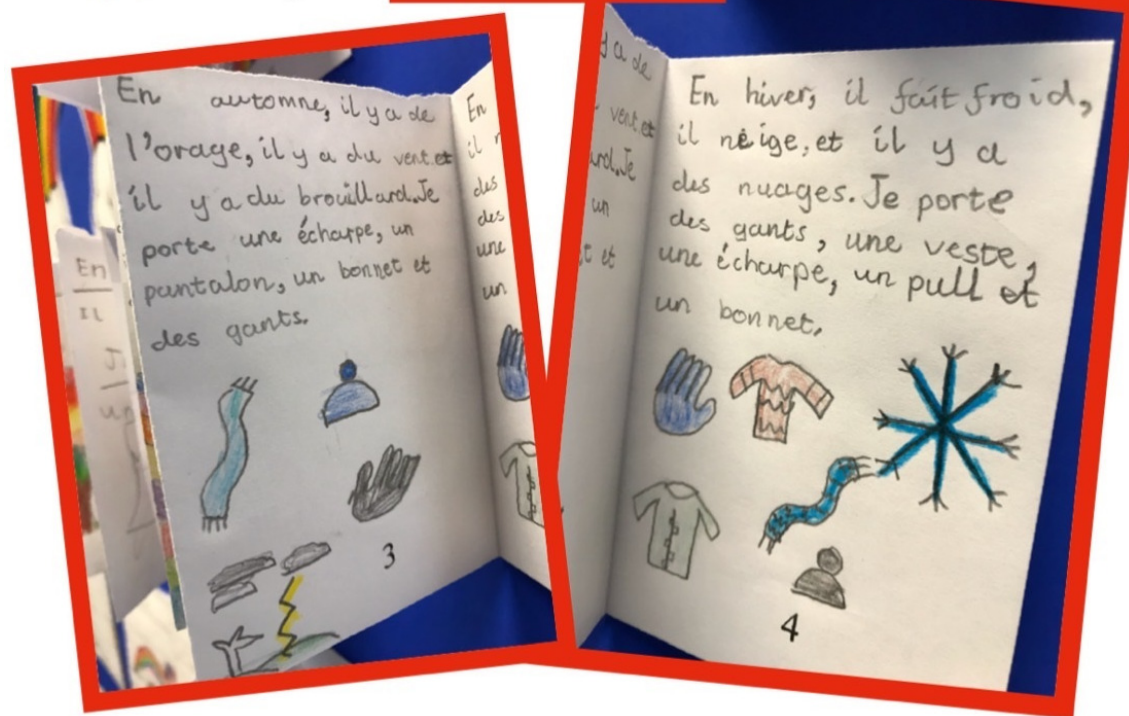 En automne, il y a de
l'orage, il y a du vent et
il y a du brouillard. Je
porte une écharpe, un
pantalon, un bonnet et
des gants.
3
En
il n
des
des
une
un
En
Il
y a de
vent et
ard. Je
un
et et
En hiver, il fait froid,
il neige, et il y a
des nuages. Je porte
des gants, une veste,
une écharpe, un pull et
un bonnet.
4